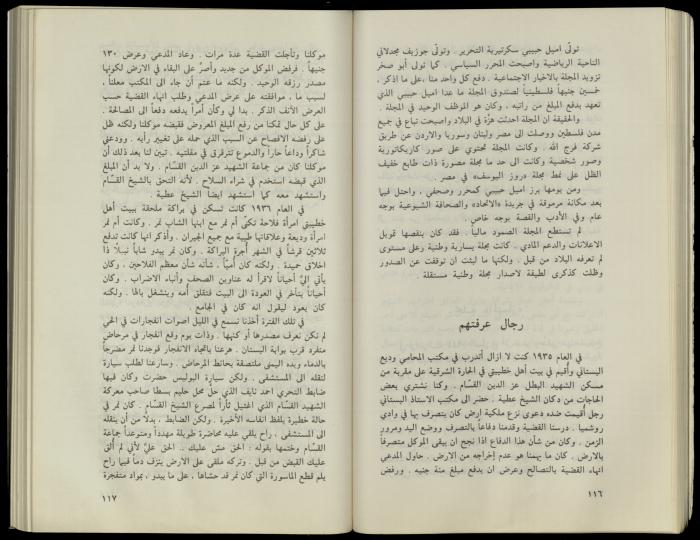 تولّى اميل حبيبي سكرتيرية التحرير . وتولّى جوزيف مجدلاني
الناحية الرياضية واصبحت المحرر السياسي . كما تولى أبو صخر
تزويد المجلة بالاخبار الاجتماعية . دفع كل واحد منا ، على ما اذكر ،
خمسين جنيهاً فلسطينياً لصندوق المجلة ما عدا اميل حبيبي الذي
تعهد بدفع المبلغ من راتبه ، وكان هو الموظف الوحيد في المجلة .
والحقيقة ان المجلة احدثت هزّة في البلاد واصبحت تباع في جميع
مدن فلسطين ووصلت الى مصر ولبنان وسوريا والاردن عن طريق
شركة فرج الله . وكانت المجلة تحتوي على صور كاريكاتورية
وصور شخصية وكانت الى حد ما مجلة مصورة ذات طابع خفيف
الظل على نمط مجلة «روز اليوسف» في مصر .
ومن يومها برز اميل حبيبي كمحرر وصحفي ، واحتل فيما
بعد مكانة مرموقة في جريدة «الاتحاد» والصحافة الشيوعية بوجه
عام وفي الأدب والقصة بوجه خاص .
لم تستطع المجلة الصمود مالياً . فقد كان ينقصها تمويل
الاعلانات والدعم المادي . كانت مجلة يسارية وطنية وعلى مستوى
لم تعرفه البلاد من قبل . ولكنها ما لبثت ان توقفت عن الصدور
وظلت كذكرى لطيفة لاصدار مجلة وطنية مستقلة .
رجال عرفتهم
في العام ١٩٣٥ كنت لا ازال أتدرب في مكتب المحامي وديع
البستاني وأقيم في بيت أهل خطيبتي في الحارة الشرقية على مقربة من
مسكن الشهيد البطل عز الدين القسّام . وكنا نشتري بعض
الحاجات من دكان الشيخ عطية . حضر الى مكتب الاستاذ البستاني
رجل أُقيمت ضده دعوى نزع ملكية ارض كان يتصرف بها في وادي
روشميا . درسنا القضية وقدمنا دفاعاً بالتصرف ووضع اليد ومرور
الزمن . وكان من شأن هذا الدفاع اذا نجح ان يبقى الموكل متصرفاً
بالارض . كان ما يهمنا هو عدم إخراجه من الارض . حاول المدعي
انهاء القضية بالتصالح وعرض ان يدفع مبلغ مئة جنيه . ورفض
١١٦
موكلنا وتأجلت القضية عدة مرات . وعاد المدعي وعرض ١٣٠
جنيهاً . فرفض الموكل من جديد وأصرّ على البقاء في الارض لكونها
مصدر رزقه الوحيد . ولكنه ما عتم أن جاء الى المكتب معلناً ،
لسبب ما ، موافقته على عرض المدعي وطلب انهاء القضية حسب
العرض الآنف الذكر . بدا لي وكأن أمراً يدفعه دفعاً الى المصالحة .
على كل حال تمكنا من رفع المبلغ المعروض فقبضه موكلنا ولكنه ظل
على رفضه الافصاح عن السبب الذي حمله على تغيير رأيه . وودعني
شاكراً وداعاً حاراً والدموع تترقرق في مقلتيه . تبين لنا بعد ذلك أن
موكلنا كان من جماعة الشهيد عز الدين القسّام . ولا بد أن المبلغ
الذي قبضه استخدم في شراء السلاح . لأنه التحق بالشيخ القسّام
واستشهد معه كما استشهد ايضاً الشيخ عطية .
في العام ١٩٣٦ كانت تسكن في براكة ملحقة ببيت أهل
خطيبتي امرأة فلاحة تكنّى أم نمر مع ابنها الشاب نمر . وكانت أم نمر
امرأة وديعة وعلاقاتها طيبة مع جميع الجيران . وأذكر انها كانت تدفع
ثلاثين قرشاً في الشهر أجرة البراكة . وكان نمر يبدو شاباً نبيلاً ذا
اخلاق حميدة . ولكنه كان أمّياً ، شأنه شأن معظم الفلاحين ، وكان
يأتي إليّ أحياناً لاقرأ له عناوين الصحف وأنباء الاضراب . وكان
أحياناً يتأخر في العودة الى البيت فتقلق أُمه وينشغل بالها . ولكنه
كان يعود ليقول انه كان في الجامع .
في تلك الفترة أخذنا نسمع في الليل اصوات انفجارات في الحي
لم نكن نعرف مصدرها أو كنهها . وذات يوم وقع انفجار في مرحاض
منفرد قرب بوابة البستان . هرعنا باتجاه الانفجار فوجدنا نمر مضرجاً
بالدماء ويده اليمنى ملتصقة بحائط المرحاض . وسارعنا لطلب سيارة
لنقله الى المستشفى . ولكن سيارة البوليس حضرت وكان فيها
ضابط التحري احمد نايف الذي حلّ محل حليم بسطا صاحب معركة
الشهيد القسّام الذي اغتيل ثأراً لمصرع الشيخ القسّام . كان نمر في
حالة خطيرة يلفظ انفاسه الأخيرة . ولكن الضابط ، بدلاً من أن ينقله
الى المستشفى ، راح يلقي عليه محاضرة طويلة مهدداً ومتوعداً جماعة
القسّام وختمها بقوله : الحق مش عليك .. الحق عليّ لأني لم أُلق
عليك القبض من قبل . وتركه ملقى على الارض ينزف دماً فيما راح
يلم قطع الماسورة التي كان نمر قد حشاها ، على ما يبدو ، بمواد متفجرة
١١٧